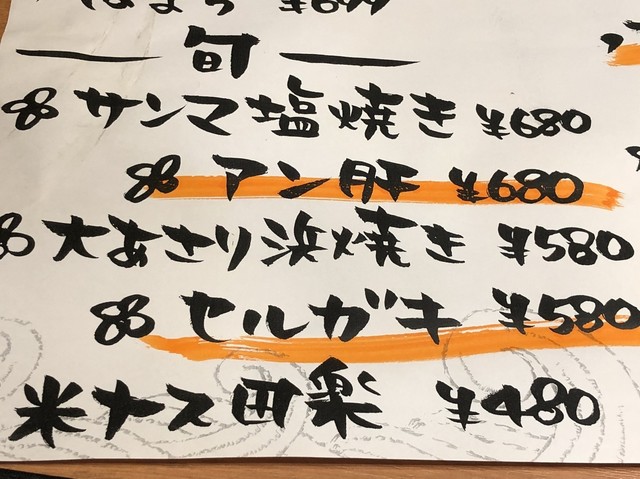 ¥699
旬
サンマ塩焼き ¥680
アン肝 ¥680
大あさり浜焼き ¥580
セルガキ ¥580
米ナス田楽 ¥480